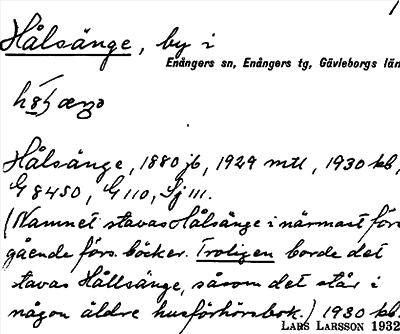 1
Hålsänge, by i
Enångers sn, Enångers tg, Gävleborgs län
Hålsänge, 1880 jb, 1929 mtl, 1930 kb,
G 8450, G 110, Sj 111.
(Namnet stavas Hålsänge i närmast före
gående förs. böcker. Troligen borde det
stavas Hållsänge, såsom det står i
någon äldre husförhörsbok.) 1930 kb.
LARS LARSSON 1932